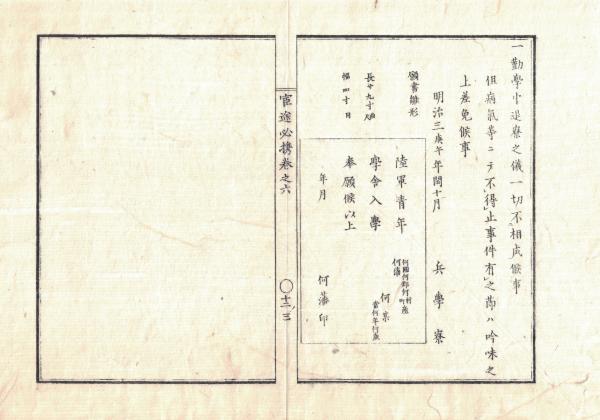 一勤學中退寮之儀一切不相成候事
但病氣等ニテ不得止事件有之節ハ吟味之
上差免候事
明治三庚午年閏十月
兵學寮
願書雛形
長サ九寸
幅四寸
陸軍青年
學舎入學
奉願候以上
年月
何國何郡何村
何藩
何某
當何年何歳
何藩印
官途必携巻之六
〇十二ノ三